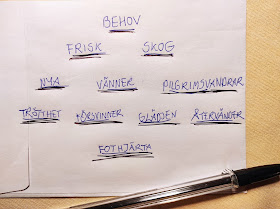 BEHOV
FRISK SKOG
NYA VÄNNER PILGRIMSVANDRAR
TRÖTTHET FÖRSVINNER GLÄDJEN ÅTERVÄNDER
FOTHJÄRTA